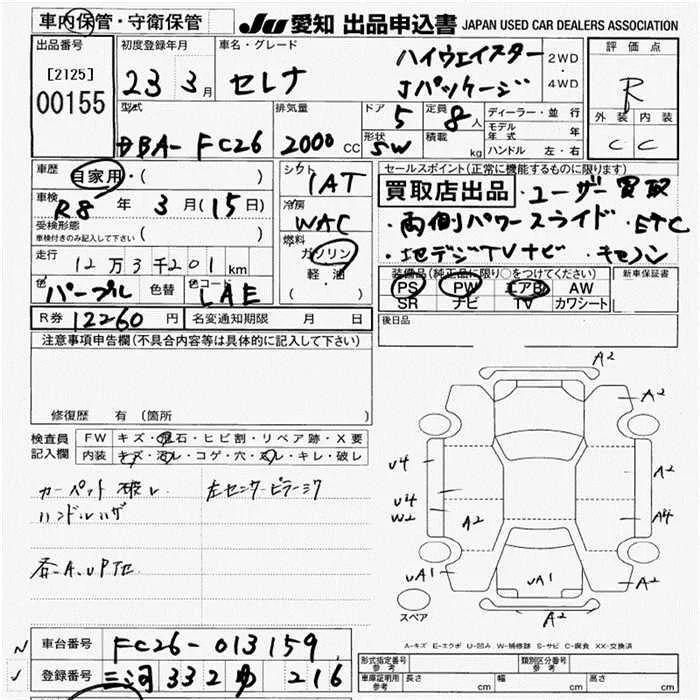 車内保管・守衛保管 JU 愛知 出品申込書 JAPAN USED CAR DEALERS ASSOCIATION
出品番号 初度登録年月 車名・グレード 評価点
[2125] 23 3月 セレナ ハイウェイスター 2WD
00155 Jパッケージ ・4WD R
型式 排気量 ドア 定員 ディーラー・並行 外装 内装
DBA-FC26 2000CC 5 8人 モデル年式 年 C C
形状 SW 積載 kg ハンドル 左・右
車歴 自家用・( ) シフト セールスポイント(正常に機能するものに限ります)
車検 R8年3月(15日) 1AT 買取店出品 ・ユーザー買取
受検形態 冷房 ・両側パワースライド ・ETC
車検付きのみ記入して下さい ( ) WAC ・地デジTVナビ ・キセノン
走行 燃料 ガソリン
12万3千201km 軽・油 装備品(純正品に限り○をつけてください) 新車保証書
色 パープル 色替 色コード LAE ( ) PS PW エアB AW
SR ナビ TV カワシート
R券 12260円 名変通知期限 月 日 後日品
注意事項申告欄(不具合内容等は具体的に記入して下さい)
修復歴 有 (箇所
A2
A2
検査員 FW キズ・飛石・ヒビ割・リペア跡・X要
記入欄 内装 キズ・汚レ・コゲ・穴・スレ・キレ・破レ
U4 A2
カーペット破レ 左センターピラーシワ
U4
ハンドルハゲ W2 A2 A4
UA1 UA1 A2
スペア A2
A-キズ E-エクボ U-凹み W-補修跡 S-サビ C-腐食 XX-交換済
車台番号 FC26-013159
登録番号 三河 332 ゆ 216
型式指定番号 参考 類別区分番号 参考
車庫証明用 参考 長さ cm 幅 cm 高さ cm